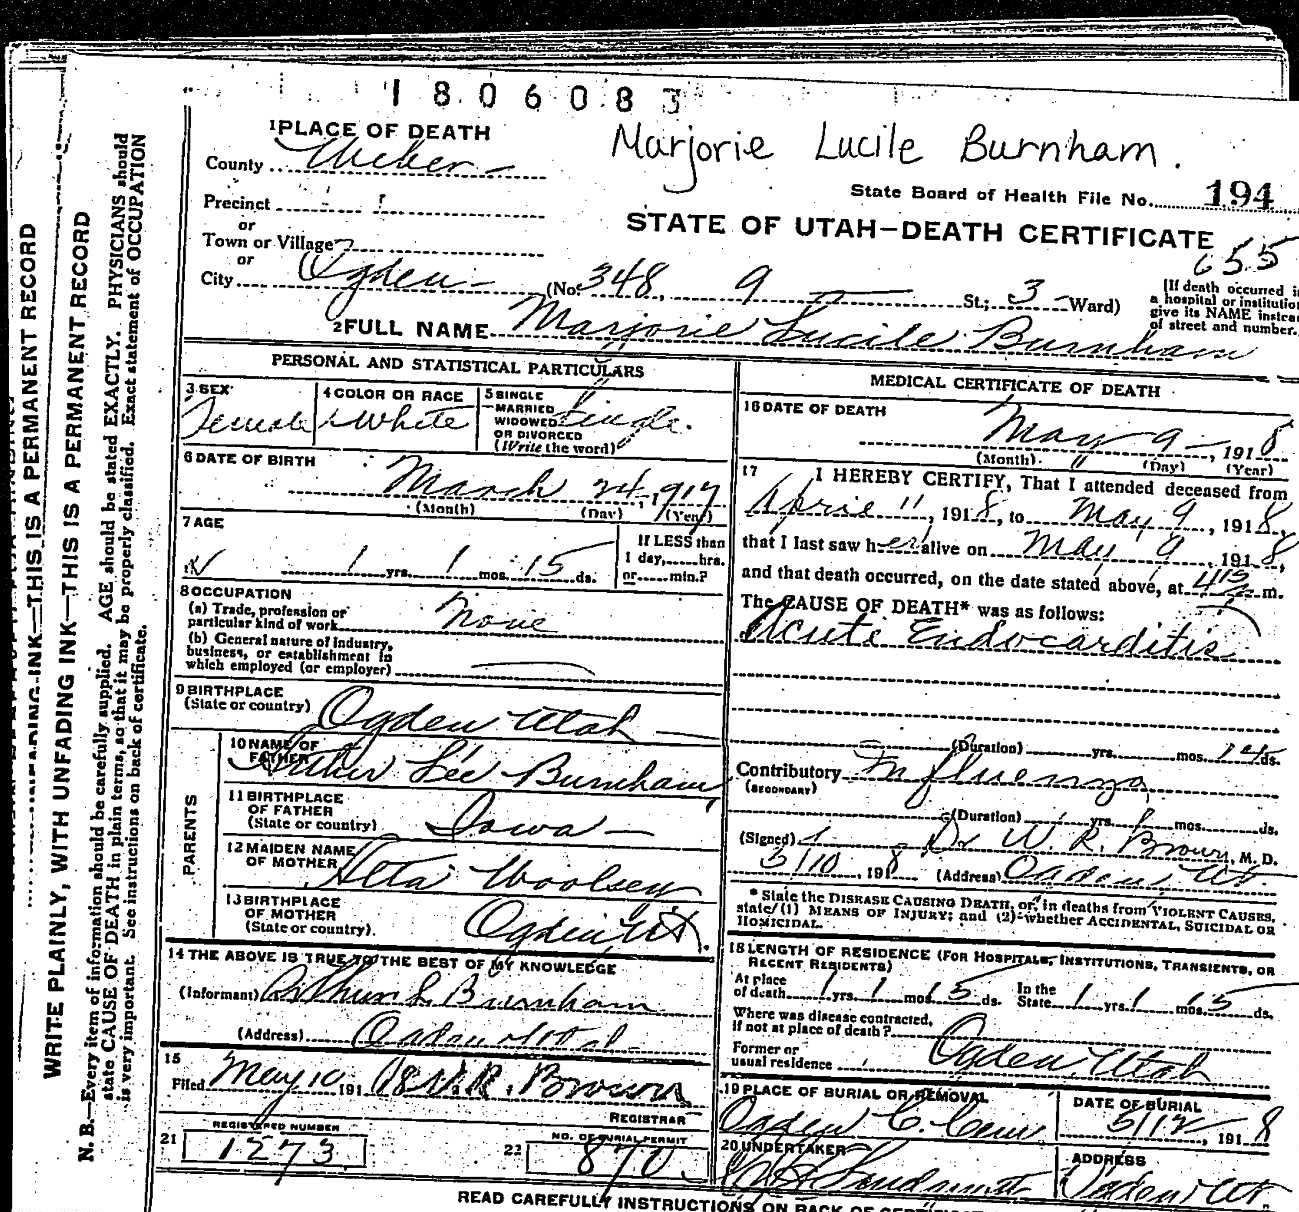 1806083
Marjorie Lucile Burnham.
1 PLACE OF DEATH
County Weber
State Board of Health File No. 194
Precinct
or
Town or Village
or
STATE OF UTAH—DEATH CERTIFICATE
655
City Ogden (No. 348, 9 St.; 3 Ward)
[If death occurred in
a hospital or institution
give its NAME instead
of street and number.
2 FULL NAME Marjorie Lucile Burnham
PERSONAL AND STATISTICAL PARTICULARS
3 SEX
Female
4 COLOR OR RACE
White
5 SINGLE
MARRIED
WIDOWED
OR DIVORCED
(Write the word)
Single.
6 DATE OF BIRTH
March 24, 1917
(Month) (Day) (Year)
7 AGE
1 yrs. 1 mos. 15 ds.
If LESS than
1 day,......hrs.
or......min.?
8 OCCUPATION
(a) Trade, profession or
particular kind of work None
(b) General nature of industry,
business, or establishment in
which employed (or employer)
9 BIRTHPLACE
(State or country) Ogden Utah
PARENTS
10 NAME OF
FATHER Arthur Lee Burnham,
11 BIRTHPLACE
OF FATHER
(State or country) Iowa
12 MAIDEN NAME
OF MOTHER Alta Woolsey
13 BIRTHPLACE
OF MOTHER
(State or country). Ogden Ut.
14 THE ABOVE IS TRUE TO THE BEST OF MY KNOWLEDGE
(Informant) Arthur L Burnham
(Address) Ogden Utah
15
Filed May 10 1918 W.R. Brown
REGISTRAR
REGISTERED NUMBER
21 1273
NO. OF BURIAL PERMIT
22 870
MEDICAL CERTIFICATE OF DEATH
16 DATE OF DEATH
May 9, 1918
(Month) (Day) (Year)
17 I HEREBY CERTIFY, That I attended deceased from
April 11, 1918, to May 9, 1918,
that I last saw her alive on May 9, 1918,
and that death occurred, on the date stated above, at m.
The CAUSE OF DEATH* was as follows:
Acute Endocarditis
(Duration) yrs. mos. ds.
Contributory Influenza
(SECONDARY)
(Duration) yrs. 1 mos. ds.
(Signed) Dr W. R. Brown, M. D.
5/10, 1918 (Address) Ogden, Ut.
* State the DISEASE CAUSING DEATH, or, in deaths from VIOLENT CAUSES,
state (1) MEANS OF INJURY; and (2) whether ACCIDENTAL, SUICIDAL OR
HOMICIDAL.
18 LENGTH OF RESIDENCE (FOR HOSPITALS, INSTITUTIONS, TRANSIENTS, OR
RECENT RESIDENTS)
At place
of death 1 yrs. 1 mos. 15 ds. In the
State 1 yrs. 1 mos. 15 ds.
Where was disease contracted,
if not at place of death?
Former or
usual residence Ogden, Utah
19 PLACE OF BURIAL OR REMOVAL
Ogden C. Cem.
DATE OF BURIAL
5/12, 1918
20 UNDERTAKER
ADDRESS
Ogden Ut.
READ CAREFULLY INSTRUCTIONS ON BACK OF
WRITE PLAINLY, WITH UNFADING INK—THIS IS A PERMANENT RECORD
N. B.—Every item of information should be carefully supplied. AGE should be stated EXACTLY. PHYSICIANS should
state CAUSE OF DEATH in plain terms, so that it may be properly classified. Exact statement of OCCUPATION
is very important. See instructions on back of certificate.